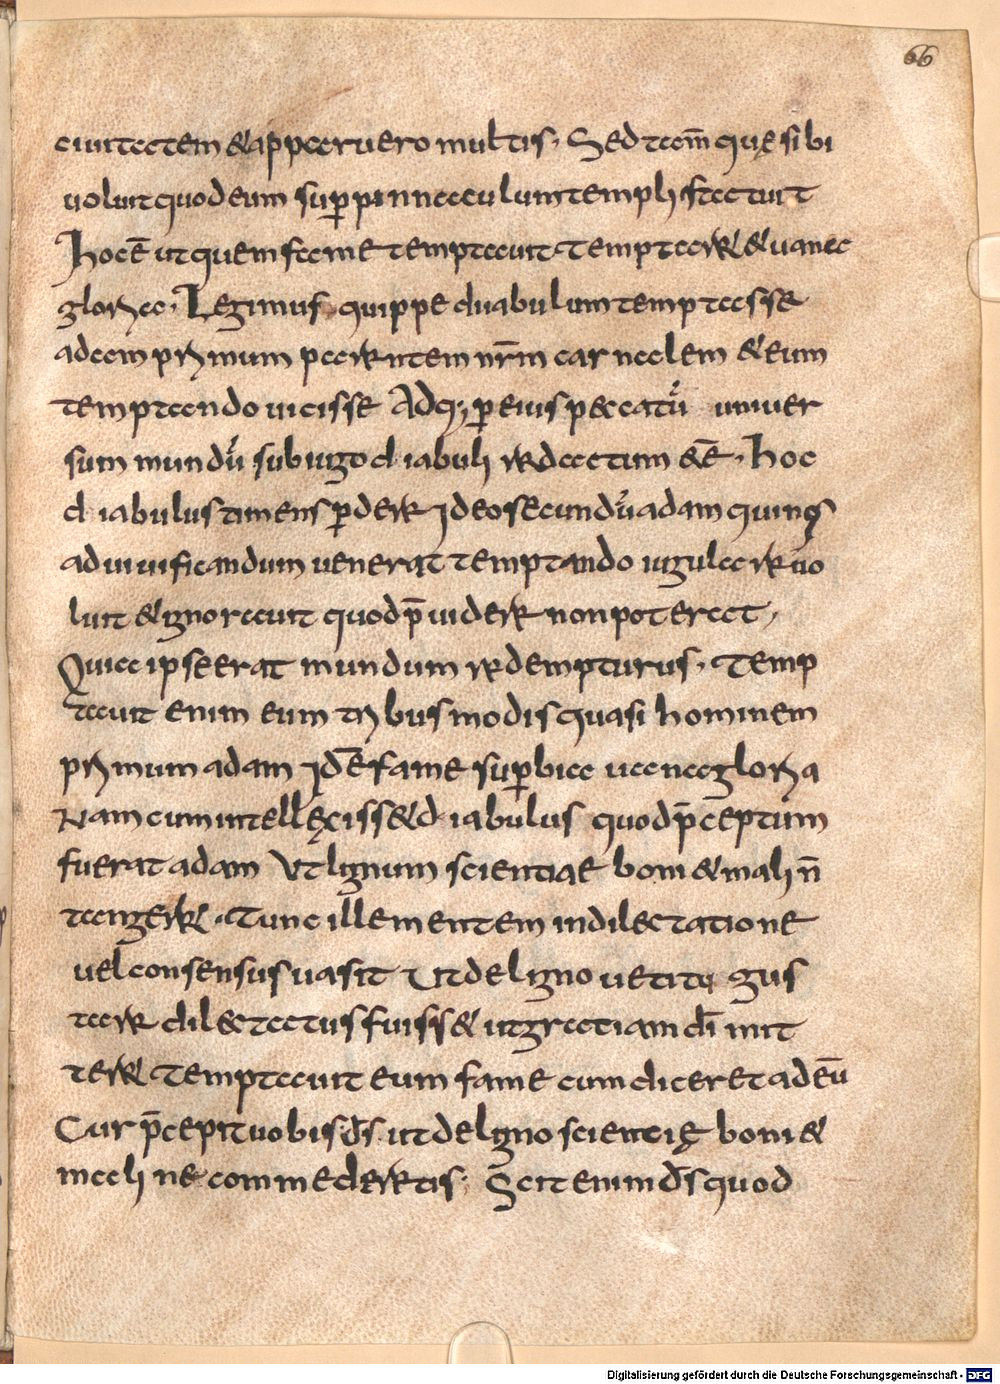 66
ciuitatem & apparuero multis. Sed tam̄ quę sibi
uoluit quod eum sup̱ pinnaculum templi statuit
Hoc ē ut quem fame temptauit. temptar& & uana
gloria. Legimus quippe diabulum temptasse
adam primum parentem nr̄m carnalem & eum
temptando uicisse Adq; p̱ eius peccatū uniuer
sum mundū sub iugo diabuli redactum eē. Hoc
diabulus timens p̱dere Ideo secundū adam qui nos
ad uiuificandum uenerat temptando iugulare uo
luit & ignorauit quod p̄uidere non poterat,
Quia ipse erat mundum redempturus. Temp
tauit enim eum tribus modis quasi hominem
primum adam Id ē fame sup̱bia uana gloria
Nam cum intellęciss& diabulus quod p̄ceptum
fuerat adam Ut lignum scientiae boni & mali n̄
tanger&. Tunc ille mentem in dilectatione
uel consensus uasit Ut de ligno uetito gus
tare dil&tatus fuiss& ut gratiam dī mit
ter& temptauit eum fame cum diceret ad eū
Cur p̄cepit uobis d̄s ut de ligno scientię boni &
mali ne commederetis. Scit enim d̄s quod
Digitalisierung gefördert durch die Deutsche Forschungsgemeinschaft - DFG